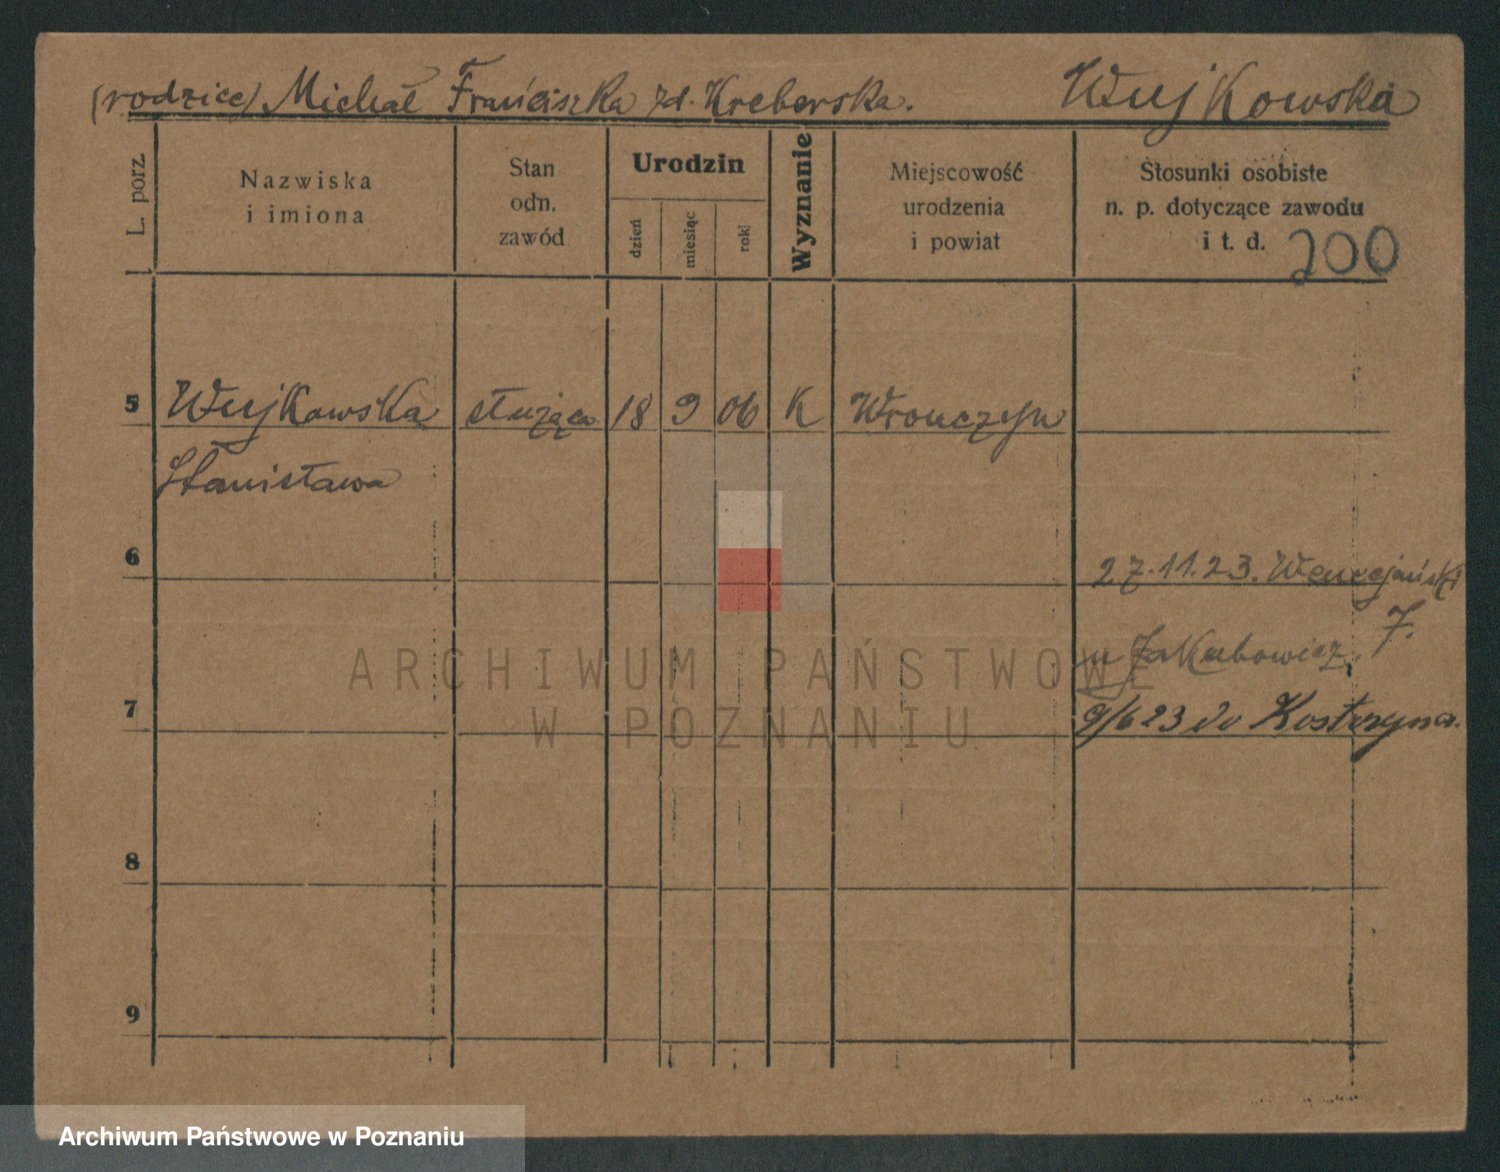 (rodzice) Michał Franciszka zd. Kreberska. Wujkowska
L. porz.
Nazwiska
i imiona
Stan
odn.
zawód
Urodzin
dzień
miesiąc
rok
Wyznanie
Miejscowość
urodzenia
i powiat
Stosunki osobiste
n. p. dotyczące zawodu
i t. d.
200
5 Wujkowska służąca 18 9 06 K Wronczyn
Stanisława
6
27.11.23. Wenecjański
7.
u Jakubowicz
7
9/6 23 do Kostrzyna.
8
9
ARCHIWUM PAŃSTWOWE
W POZNANIU
Archiwum Państwowe w Poznaniu